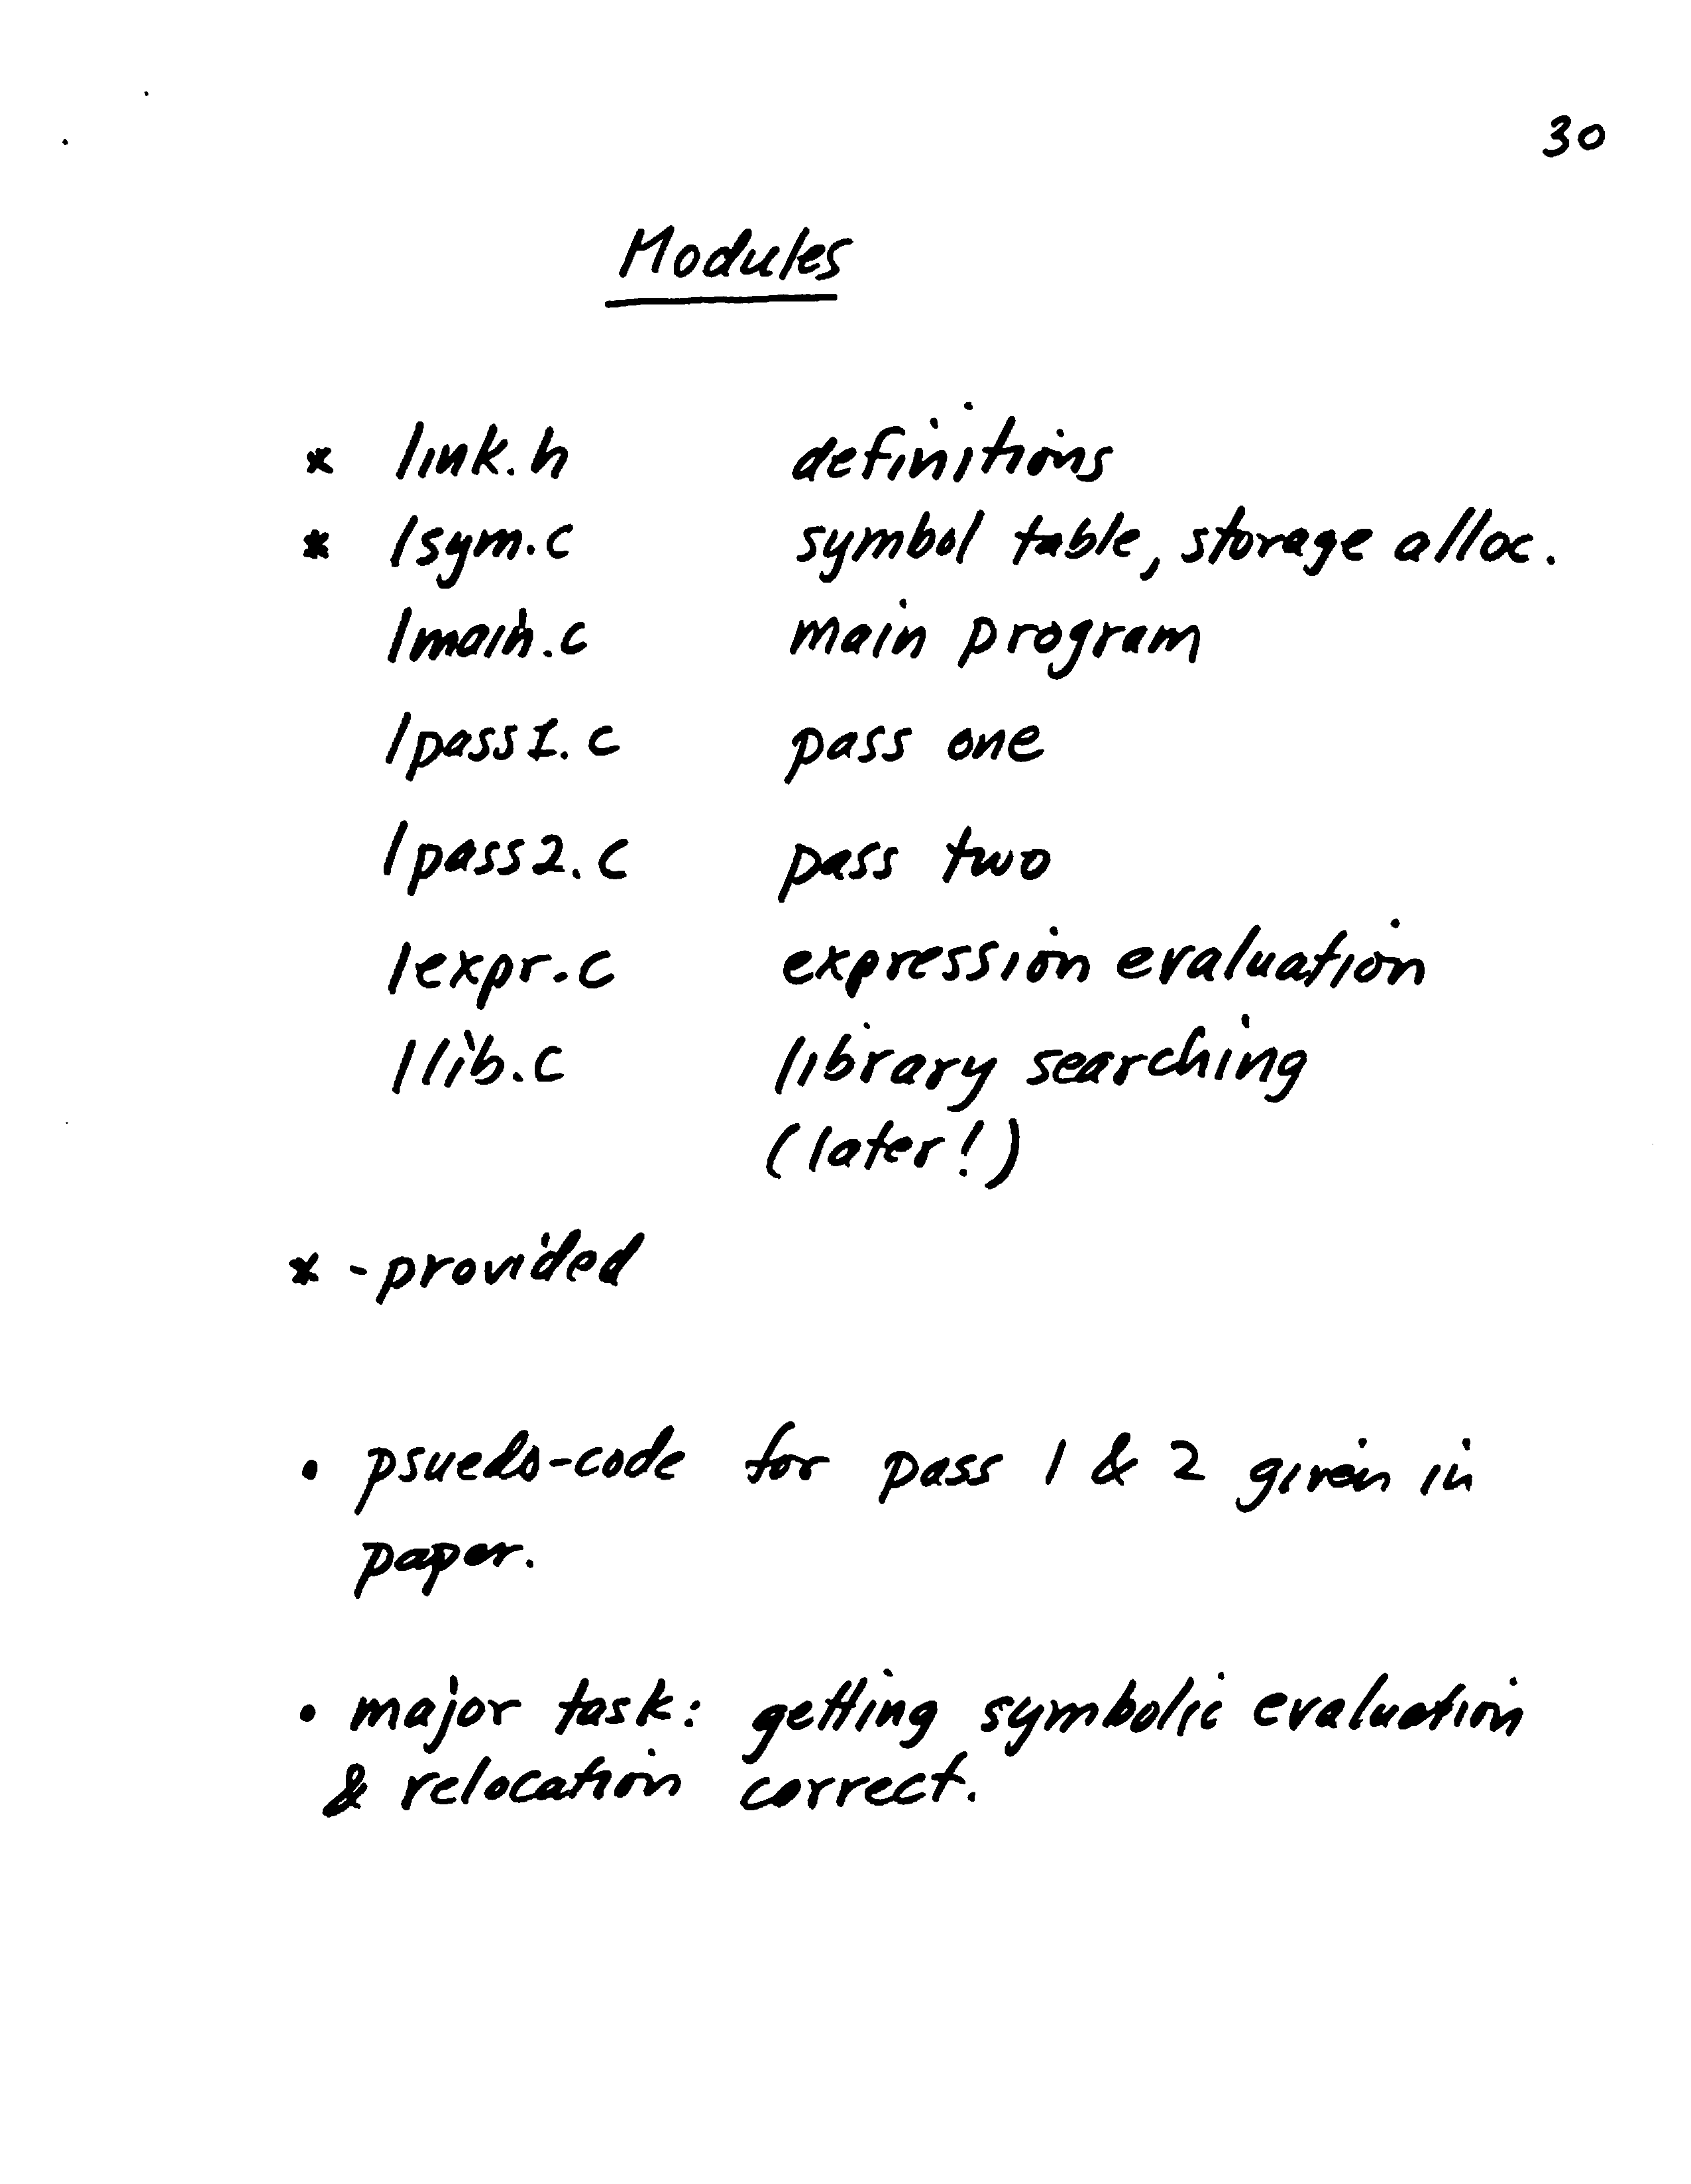 30
Modules
* link.h definitions
* lsym.c symbol table, storage alloc.
lmain.c main program
lpass1.c pass one
lpass2.c pass two
lexpr.c expression evaluation
llib.c library searching
(later!)
* - provided
• psuedo-code for pass 1 & 2 given in
paper.
• major task: getting symbolic evaluation
& relocation correct.